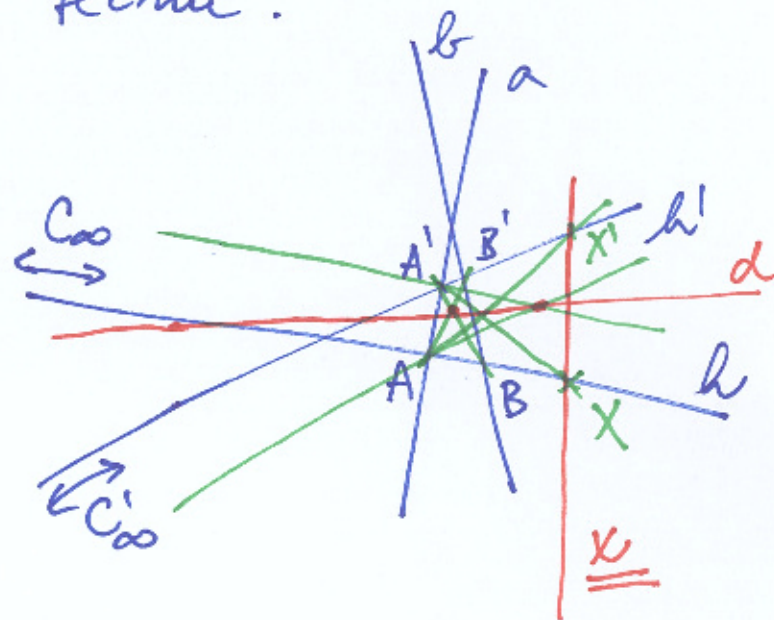 b
a
C∞
A'
B'
X'
h'
d
A
B
h
X
C'∞
x